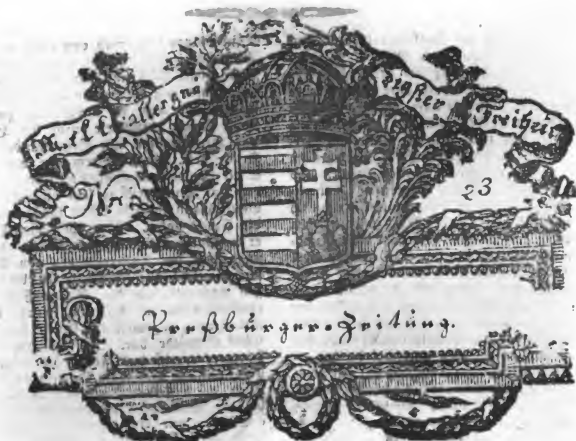 Mit allergnä digster Freiheit
Nro 23
Preßburger-Zeitung.